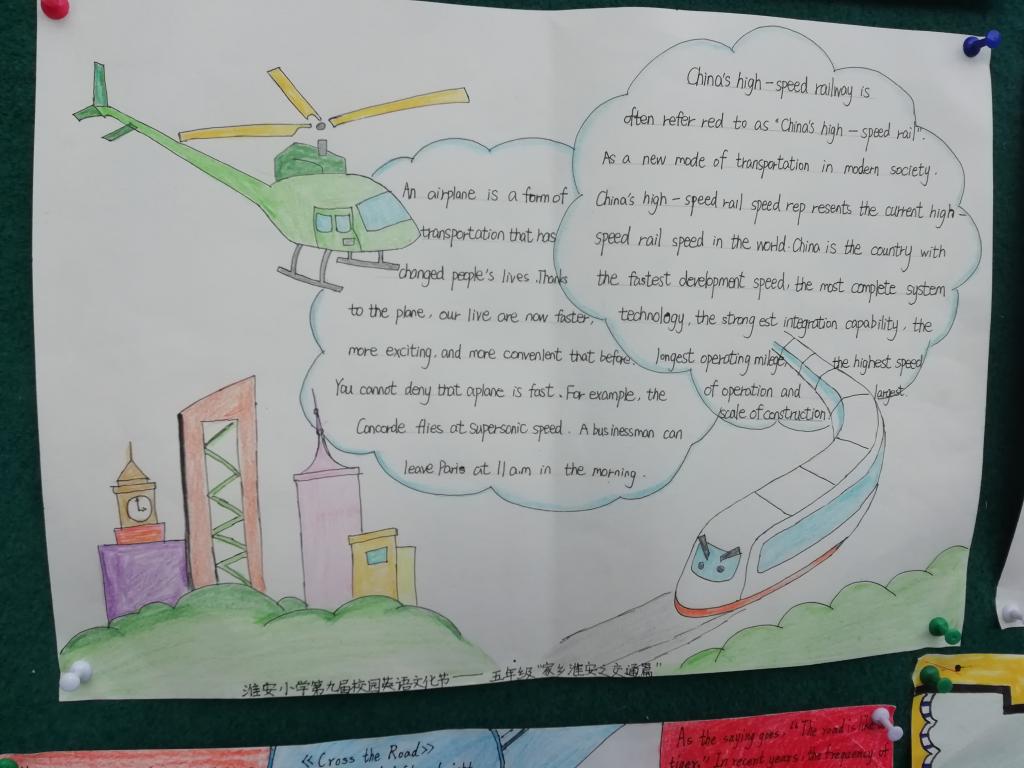 An airplane is a form of
transportation that has
changed people's lives. Thanks
to the plane, our live are now faster,
more exciting, and more convenient that before.
You cannot deny that aplane is fast. For example, the
Concorde flies at supersonic speed. A businessman can
leave Paris at 11 a.m in the morning.
China's high-speed railway is
often refer red to as "China's high-speed rail".
As a new mode of transportation in modern society.
China's high-speed rail speed rep resents the current high-
speed rail speed in the world. China is the country with
the fastest development speed, the most complete system
technology, the strong est integration capability, the
longest operating milege, the highest speed
of operation and largest
scale of construction.
淮安小学第九届校园英语文化节——五年级"家乡淮安之交通篇"
《Cross the Road》
As the saying goes, "The road is like a
tiger." In recent years, the frequency of